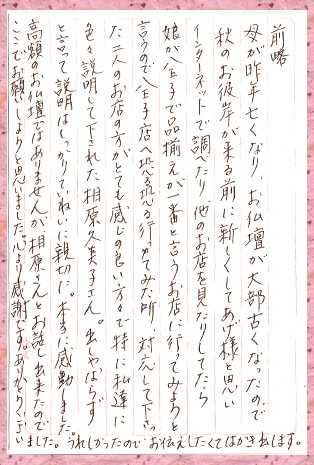 前略
母が昨年亡くなり、お仏壇が大部古くなったので
秋のお彼岸が来る前に新しくしてあげ様と思い
インターネットで調べたり他のお店を見たりしてたら
娘が八王子で品揃えが一番と言うお店に行ってみようと
言うので八王子店へ恐る恐る行ってみた所、対応して下さっ
た二人のお店の方がとても感じの色い方々で特に私達に
色々説明して下された相原久美子さん。出しゃばらず
と言って説明はしっかりていねいに親切に。本当に感動しました。
高額のお仏壇ではありませんが相原さんとお話し出来たので
ここでお願いしようと思いました。心より感謝です。ありがとうござい
ました。うれしかったのでお伝えしたくてはがき出します。